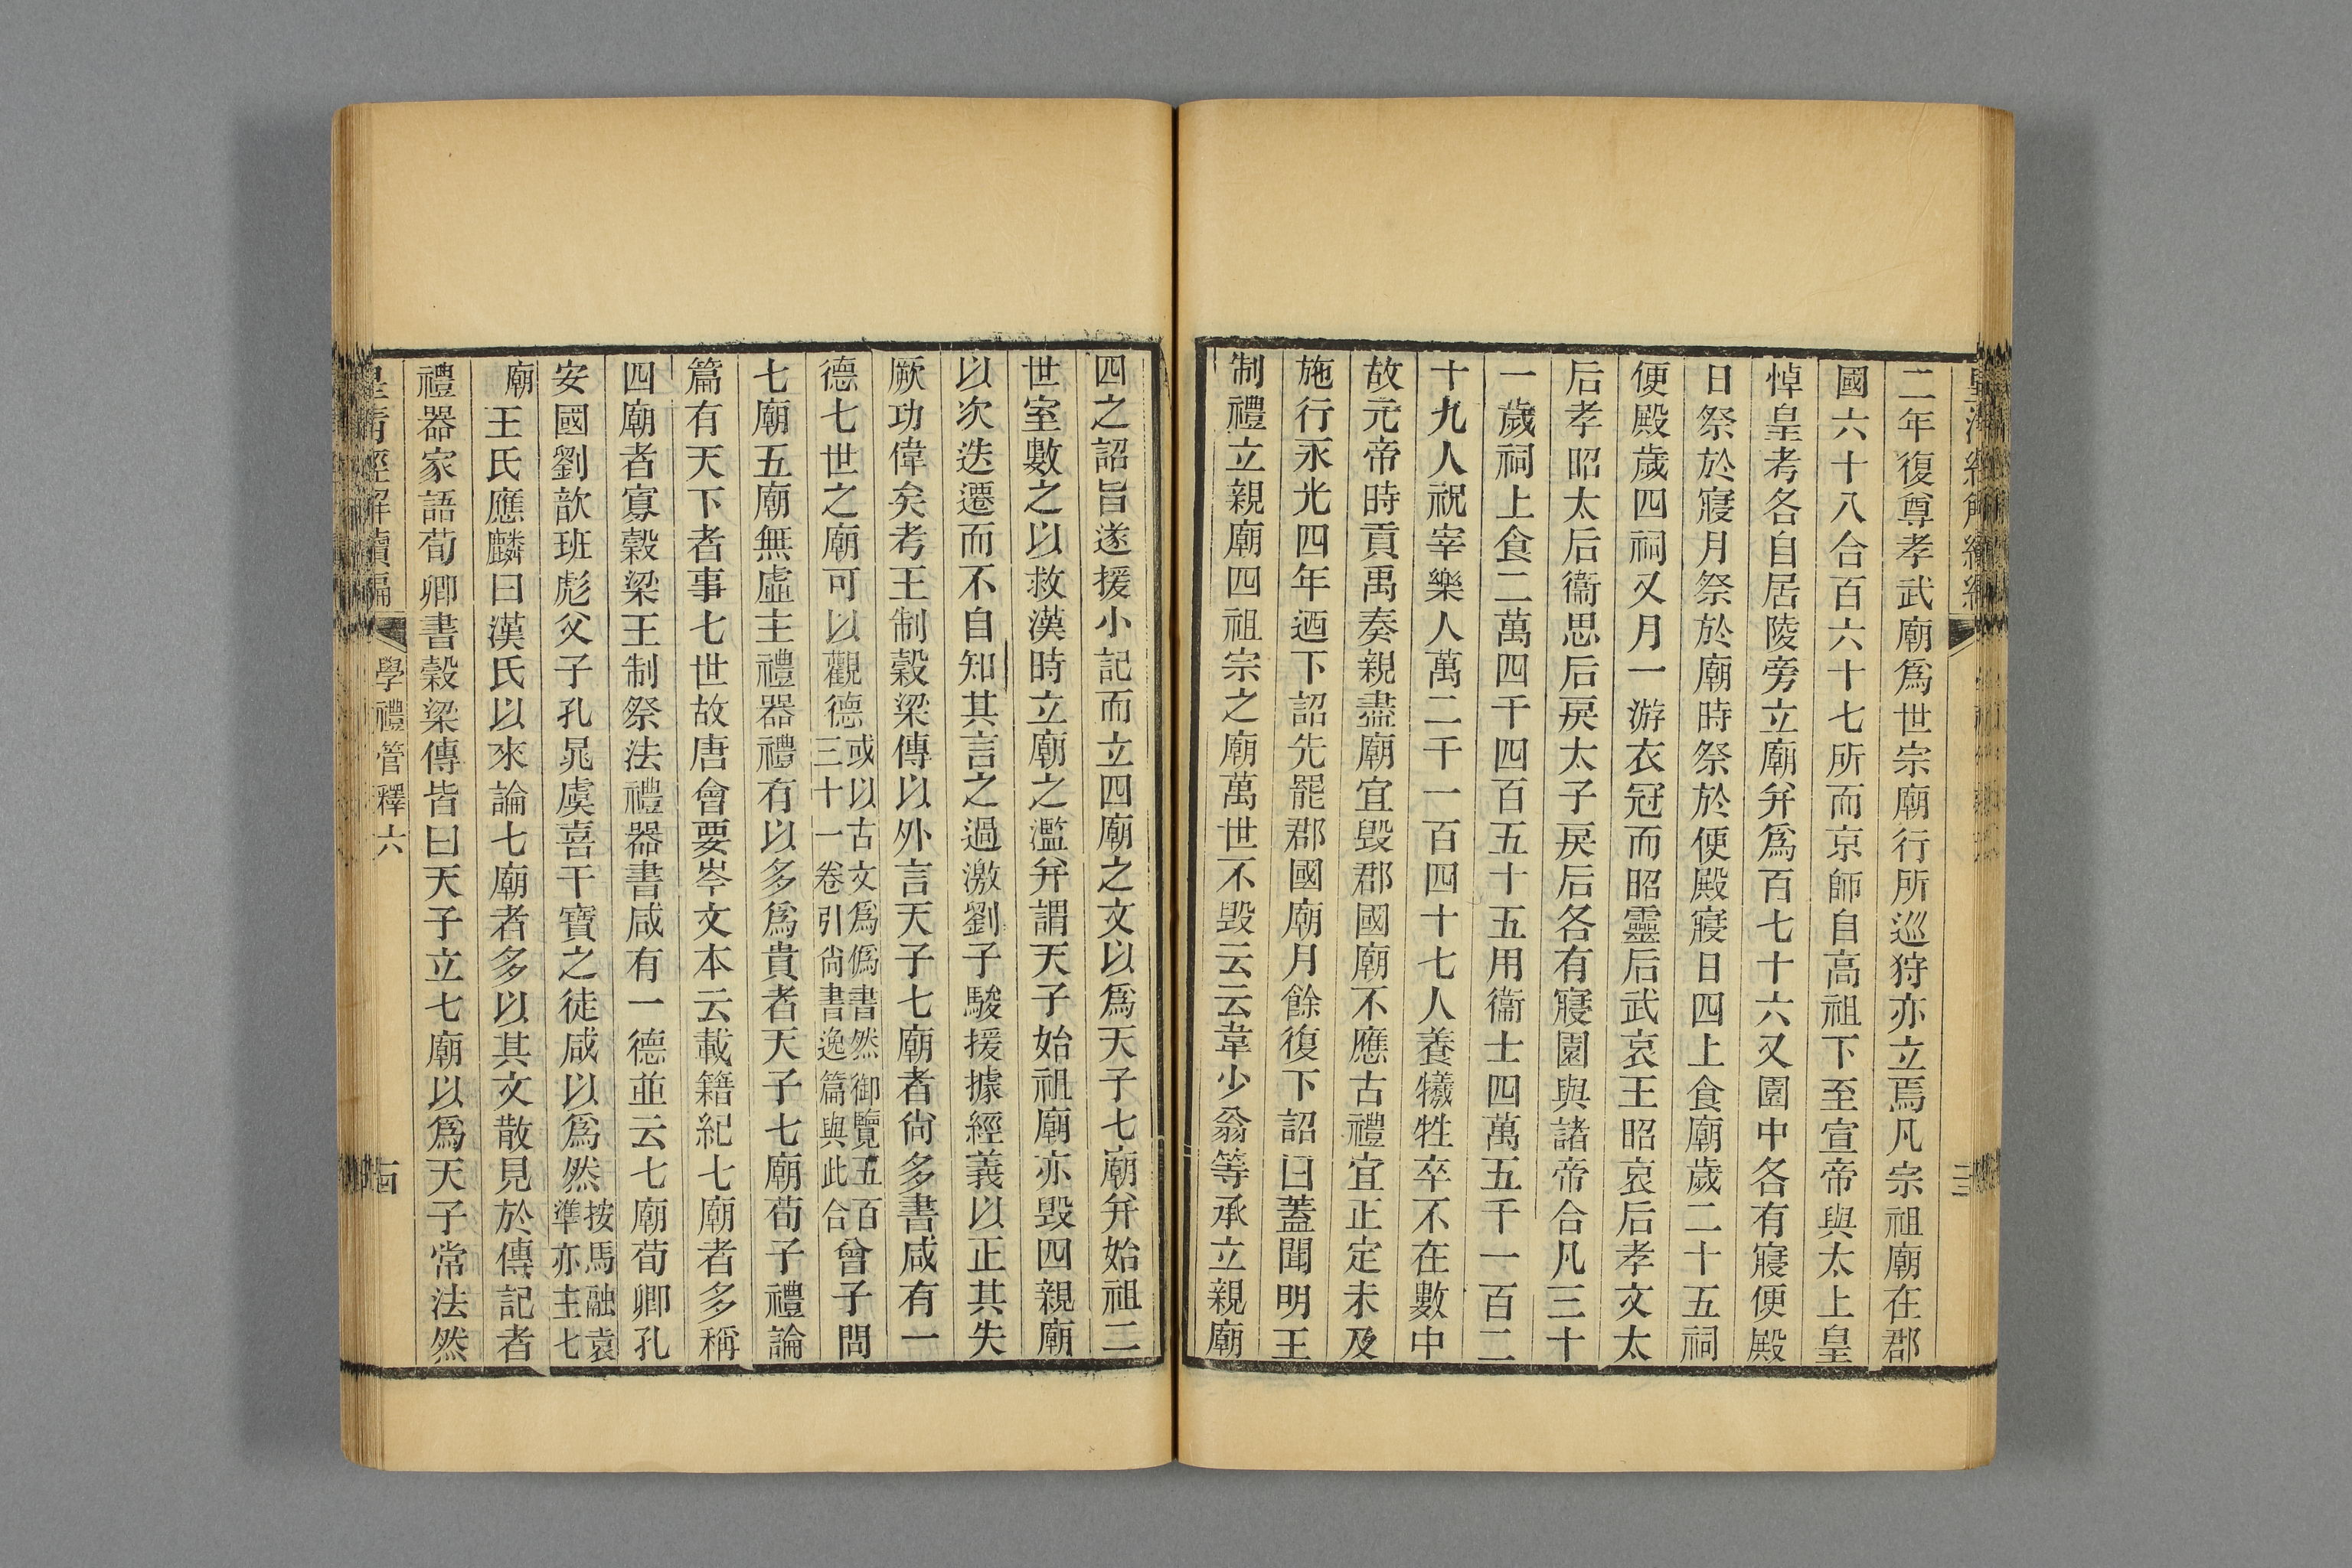 二年復尊孝武廟爲世宗廟行所巡狩亦立焉凡宗祖廟在郡
國六十八合百六十七所而京師自高祖下至宣帝與太上皇
悼皇考各自居陵旁立廟并爲百七十六又園中各有寢便殿
日祭於寢月祭於廟時祭於便殿寢日四上食廟歲二十五祠
便殿歲四祠又月一游衣冠而昭靈后武哀王昭哀后孝文太
后孝昭太后衞思后戾太子戾后各有寢園與諸帝合凡三十
一歲祠上食二萬四千四百五十五用衞士四萬五千一百二
十九人祝宰樂人萬二千一百四十七人養犧牲卒不在數中
故元帝時貢禹奏親盡廟宜毀郡國廟不應古禮宜正定未及
施行永光四年迺下詔先罷郡國廟月餘復下詔曰蓋聞明王
制禮立親廟四祖宗之廟萬世不毀云云韋少翁等承立親廟
四之詔旨遂援小記而立四廟之文以爲天子七廟并始祖二
世室數之以救漢時立廟之濫并謂天子始祖廟亦毀四親廟
以次迭遷而不自知其言之過激劉子駿援據經義以正其失
厥功偉矣考王制穀梁傳以外言天子七廟者尚多書咸有一
德七世之廟可以觀德或以古文爲僞書然御覽五百三十一卷引尚書逸篇與此合曾子問
七廟五廟無虛主禮器禮有以多爲貴者天子七廟荀子禮論
篇有天下者事七世故唐會要岑文本云載籍紀七廟者多稱
四廟者寡穀梁王制祭法禮器書咸有一德並云七廟荀卿孔
安國劉歆班彪父子孔晁虞喜干寶之徒咸以爲然按馬融袁準亦主七
廟王氏應麟曰漢氏以來論七廟者多以其文散見於傳記者
禮器家語荀卿書穀梁傳皆曰天子立七廟以爲天子常法然
皇清經解續編 學禮管釋六